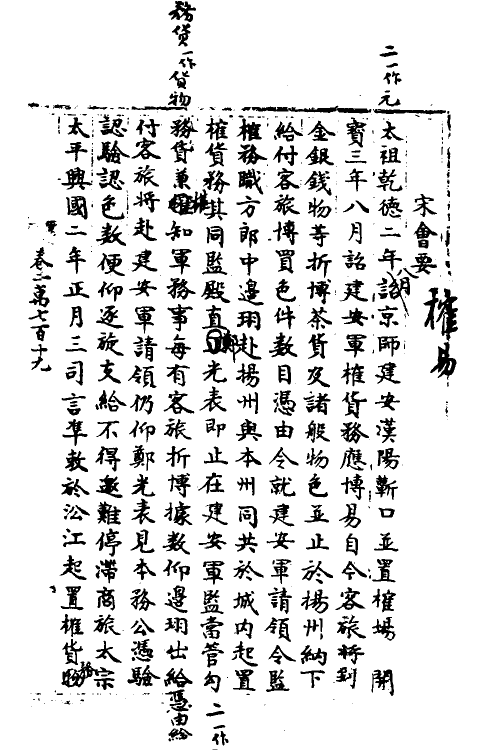 宋會要
榷易
太祖乾德二年八月詔京師建安漢陽蘄口並置榷場 開
寶三年八月詔建安軍榷貨務應博易自今客旅將到
金銀錢物等折博茶貨及諸般物色並止於揚州納下
給付客旅博買色件數目憑由令就建安軍請領令監
榷務職方郎中邊珝赴揚州與本州同共於城內起置
榷貨務其同監殿直鄭光表即止在建安軍監當管勾
務貨兼權知軍務事每有客旅折博據數仰邊珝出給憑由給
付客旅將赴建安軍請領仍仰鄭光表見本務公憑驗
認驗認色數便仰逐旋支給不得邀難停滯商旅太宗
太平興國二年正月三司言準敕於沿江起置榷貨務
卷二萬七百十九
二一作元
務貨一作貨物
二一作